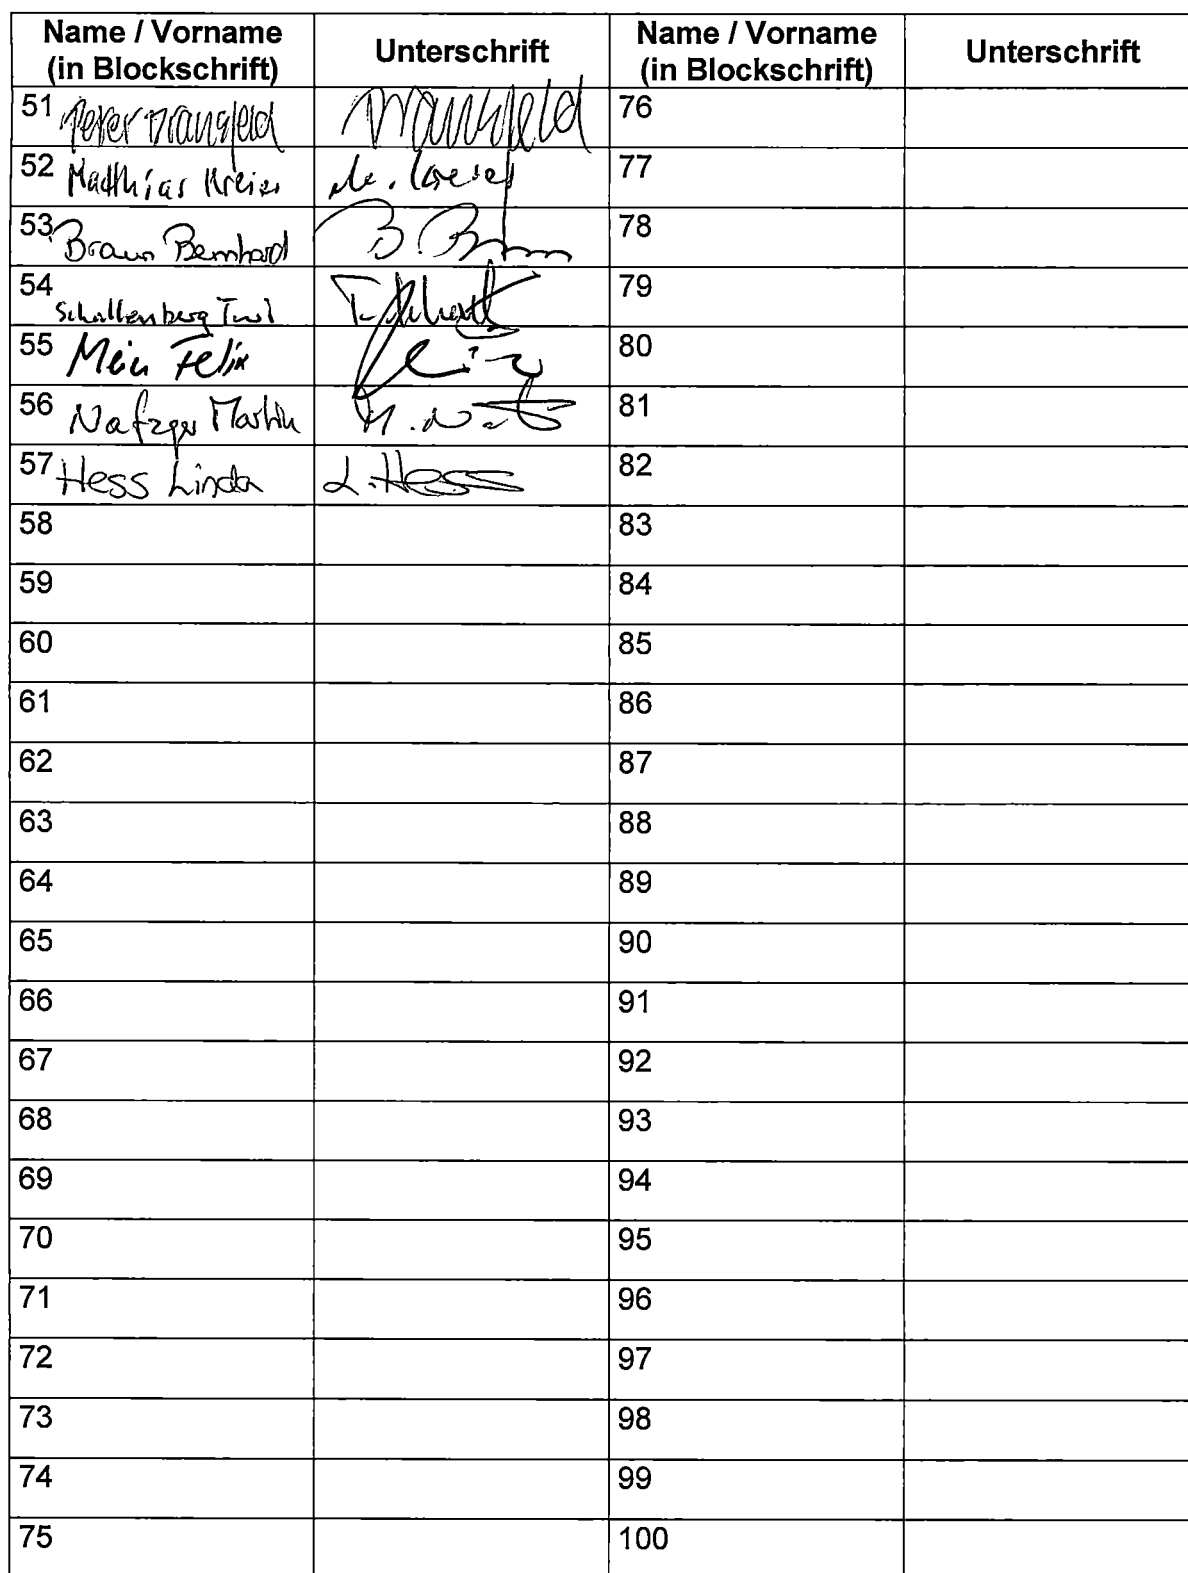 Name / Vorname (in Blockschrift) Unterschrift Name / Vorname (in Blockschrift) Unterschrift
51 Peter 76
52 Matthias Kreier 77
53 Braun Bernhard B. 78
54 Schallenberg 79
55 Felix 80
56 Nafzger Martin 81
57 Hess Linda L. Hess 82
58 83
59 84
60 85
61 86
62 87
63 88
64 89
65 90
66 91
67 92
68 93
69 94
70 95
71 96
72 97
73 98
74 99
75 100